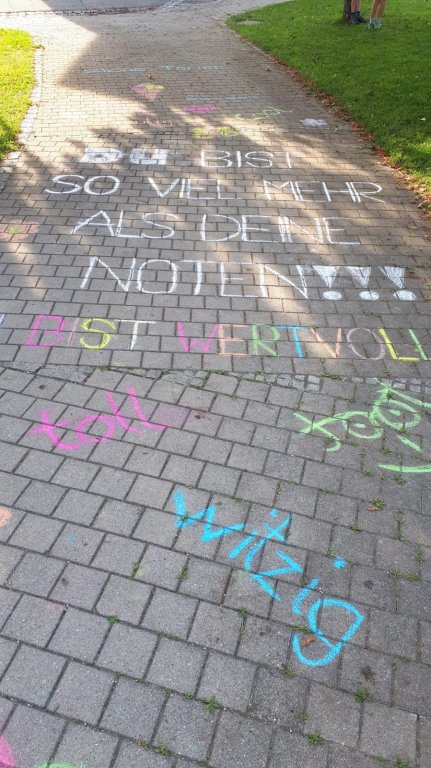 DU BIST
SO VIEL MEHR
ALS DEINE
NOTEN!!!
BIST WERTVOLL
toll
witzig